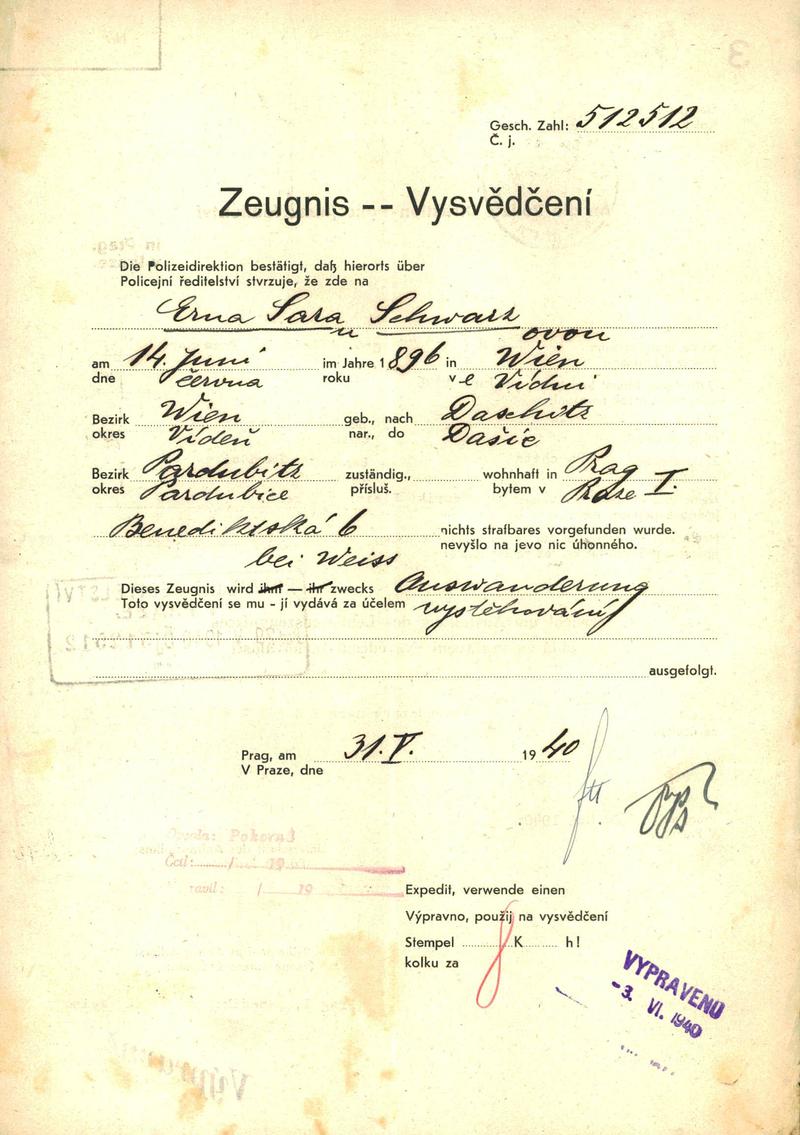 Gesch. Zahl: 512512
Č. j.
Zeugnis -- Vysvědčení
Die Polizeidirektion bestätigt, daß hierorts über
Policejní ředitelství stvrzuje, že zde na
Erna Sara Schwarz
u ovou
am 14. Juni im Jahre 1896 in Wien
dne června roku v e Vídni
Bezirk Wien geb., nach Daschitz
okres Vídeň nar., do Dašic
Bezirk Pardubitz zuständig., wohnhaft in Prag
okres Pardubice přísluš. bytem v Praze I.
Benediktská 6 nichts strafbares vorgefunden wurde.
nevyšlo na jevo nic úhonného.
bei Weiss
Dieses Zeugnis wird ihm — ihr zwecks Auswanderung
Toto vysvědčení se mu - jí vydává za účelem vystěhování
ausgefolgt.
Prag, am 31. V. 1940
V Praze, dne
Pokorná
Četl: / 19
/ 19
Expedit, verwende einen
Výpravno, použij na vysvědčení
Stempel K h!
kolku za
8
VYPRAVENO
-3. VI. 1940